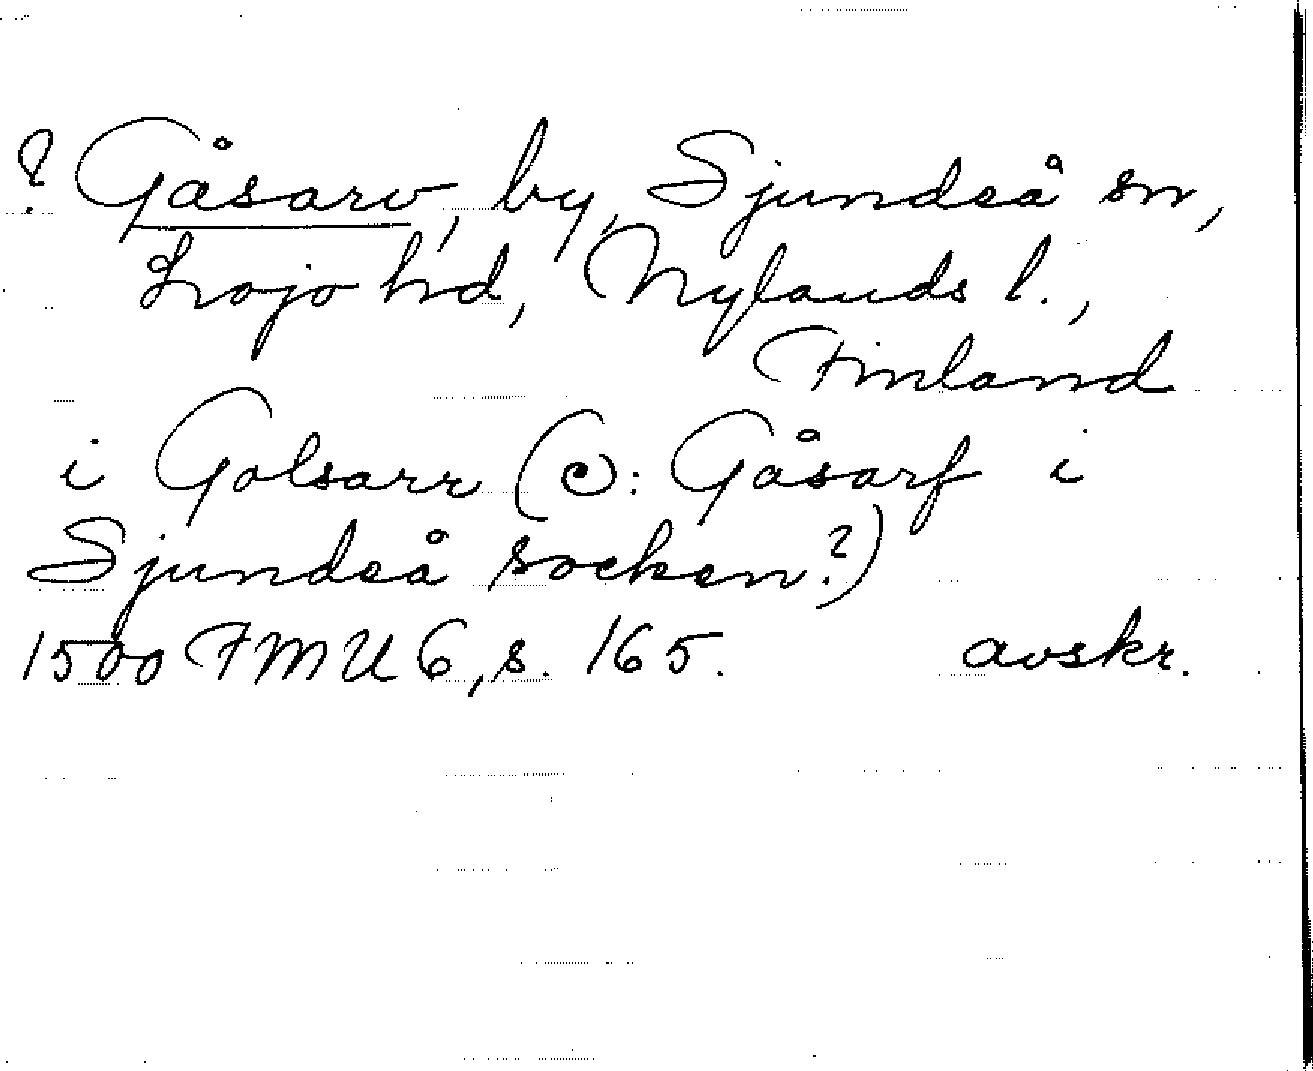 ? Gåsarv, by, Sjundeå sn,
Lojo hd, Nylands l.,
Finland
i Golsarr (ɔ: Gåsarf i
Sjundeå socken?)
1500 FMU 6, s. 165. avskr.